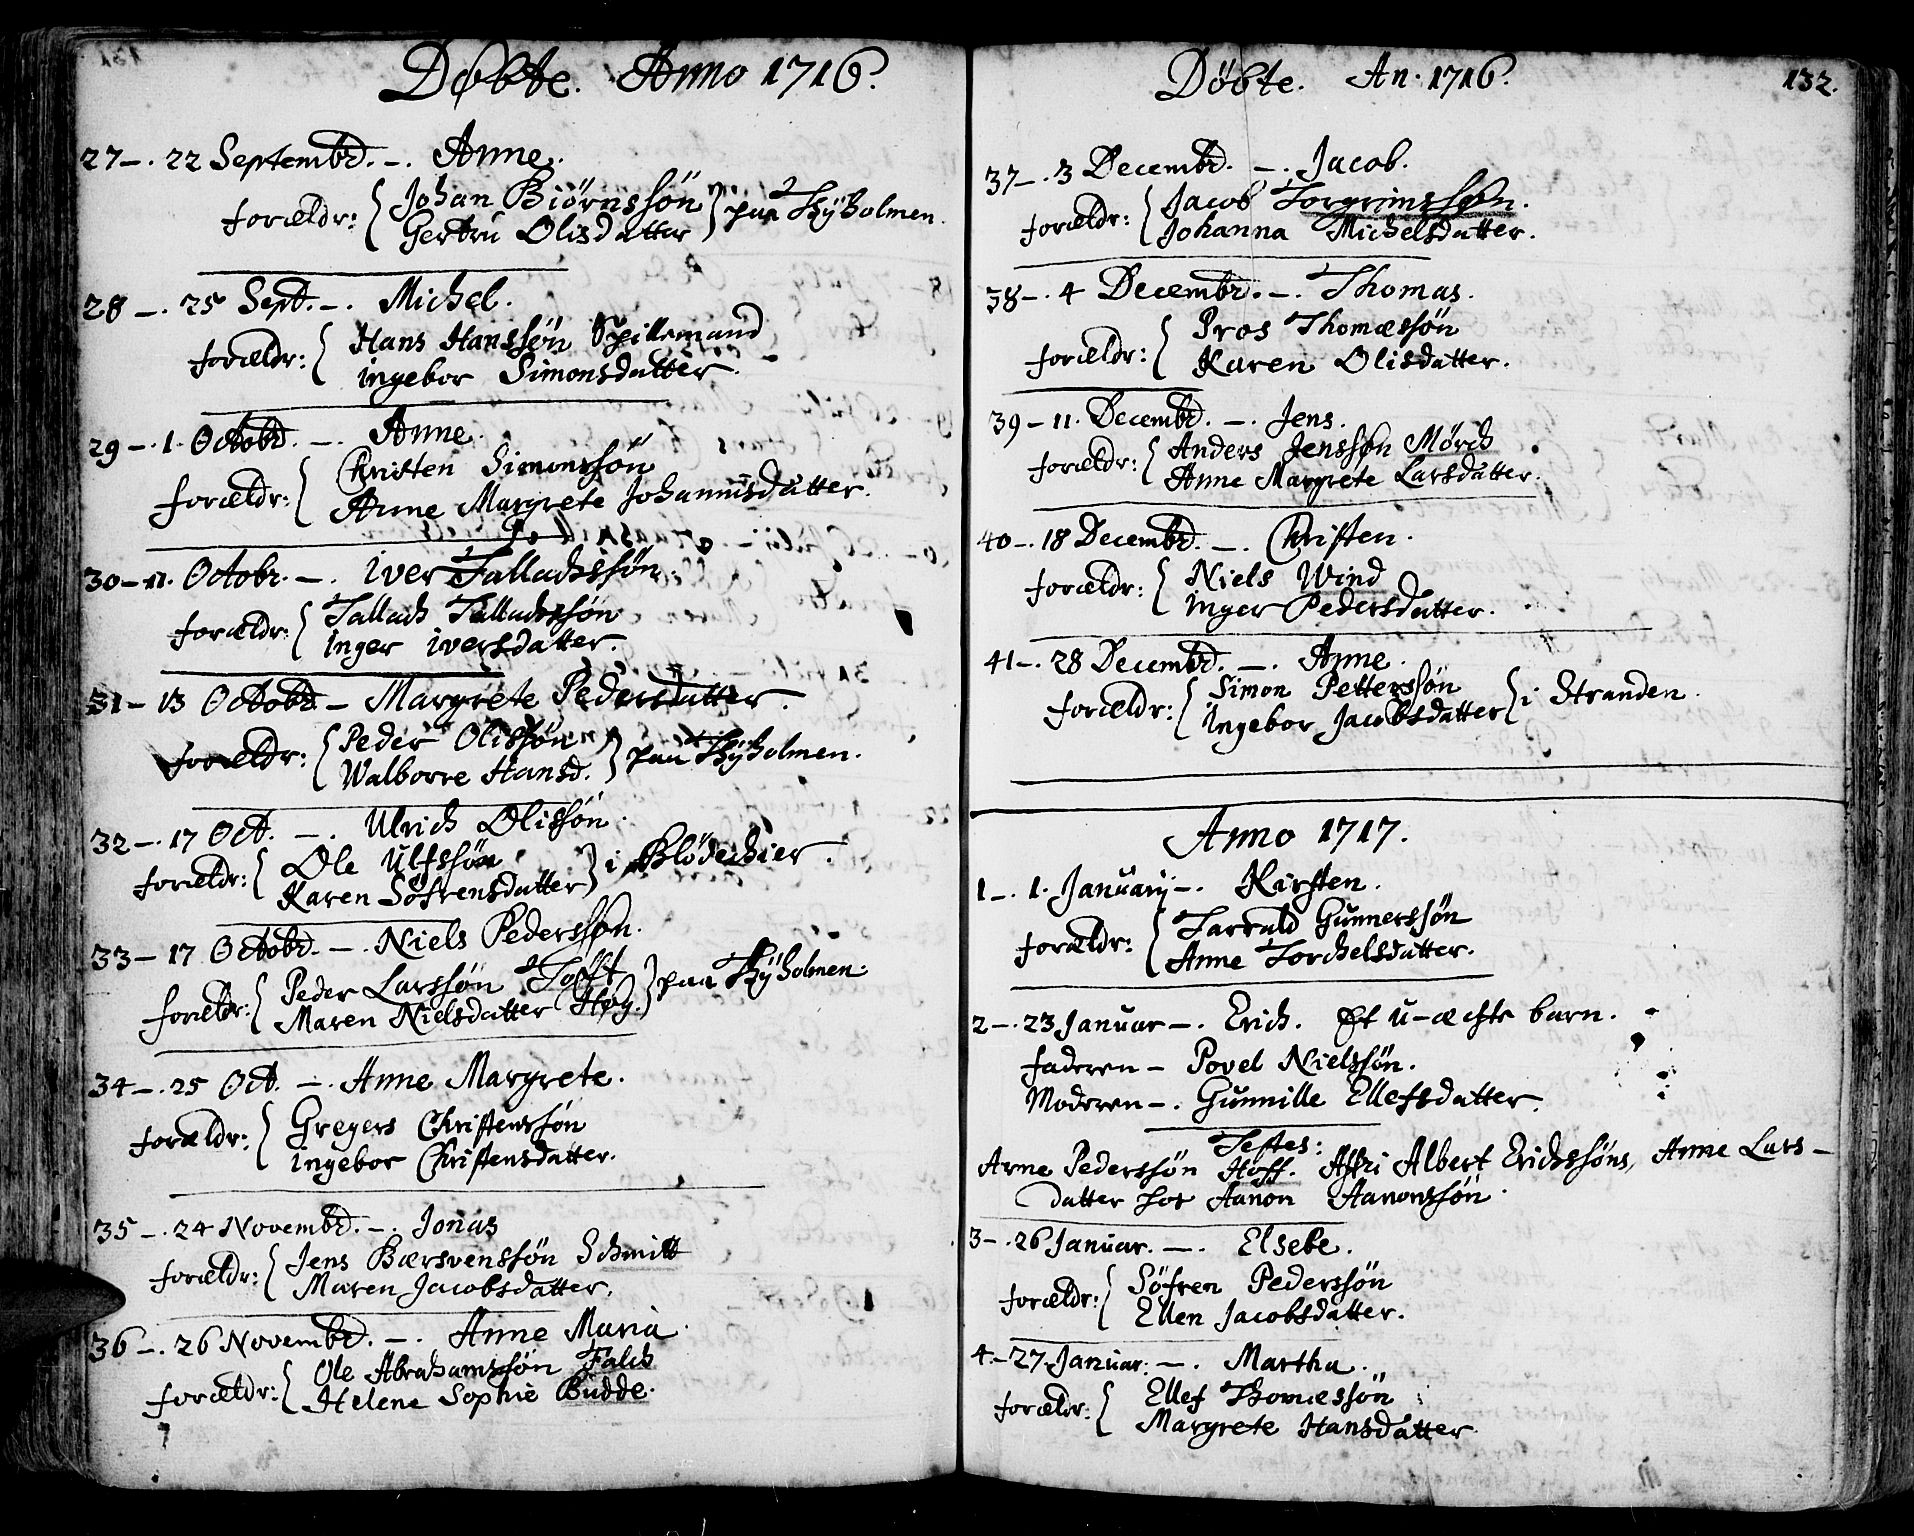 Döbte. Anno 1716.
27 –. 22 Septembr. –. Anne.
forældr: { Johan Biörnssön } paa Thÿholmen.
Gertru Olisdatter
28 –. 25 Sept. –. Michel.
forældr: { Hans Hanssön Spillemand
ingebor Simonsdatter.
29 –. 1. Octobr. –. Anne.
forældr: { Christen Simonssön
Anne Margrete Johannisdatter.
30 – 11. Octobr. –. iver Tallachssøn.
forældr: { Tallach Tallachssøn
inger iversdatter.
31 – 13 Octobr. – Margrete Pedersdatter.
forældr: { Peder Olissön } paa Thÿholmen.
Walborre Hansd.
32 –. 17 Oct. –. Ulrich Olissön.
forældr: { Ole Ulfssön } i Blödechier.
Karen Söfrensdatter
33 – 17 Octobr. –. Niels Pederssøn.
forældr: { Peder Larssön Tofft } paa Thÿholmen.
Maren Nielsdatter Høg.
34 –. 25 Oct. –. Anne Margrete.
forældr: { Gregers Christenssön
ingebor Christensdatter.
35 –. 24 Novembr. –. Jonas
forældr: { Jens Bærsvenssön Schmitt
Maren Jacobsdatter.
36 –. 26 Novembr. –. Anne Maria.
forældr: { Ole Abrahamssön Falch
Helene Sophie Budde.
Döbte. An. 1716. 132.
37 –. 3 Decembr. –. Jacob.
forældr: { Jacob Torgrimssøn.
Johanna Michelsdatter.
38 –. 4 Decembr. –. Thomas.
forældr: { Pros Thomæssön
Karen Olisdatter.
39 – 11. Decembr. –. Jens.
forældr: { Anders Jenssøn Mörch
Anne Margrete Larsdatter.
40 –. 18 Decembr. –. Christen.
forældr: { Niels Wind
inger Pedersdatter.
41 –. 28 Decembr. –. Anne.
forældr: { Simon Petterssön } i Stranden.
Ingebor Jacobsdatter
Anno 1717.
1 –. 1. Januarij –. Kirsten.
forældr: { Tarrald Gunnerssön
Anne Torchelsdatter.
2 –. 23 Januar –. Erich. Et u-æchte barn.
faderen – Povel Nielssön.
Moderen –. Gunnille Ellefsdatter.
Testes:
Arne Pederssön Hoff. Assri Albert Erichssöns, Anne Lars-
datter hos Aanon Aanonssön.
3 –. 26 Januar. –. Elsebe.
forældr: { Söfren Pederssön
Ellen Jacobsdatter.
4. – 27 Januar: –. Martha.
forældr: { Ellef Thomæssön
Margrete Hansdatter